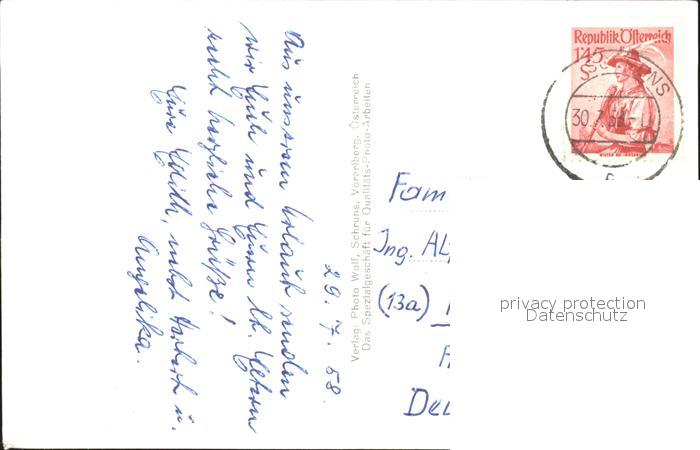 29. 7. 58.
Aus unserem Urlaub senden
wir Euch und Euren lb. Eltern
recht herzliche Grüße!
Eure Edith, nebst Herbert u.
Angelika.
Verlag: Photo Wolf, Schruns, Vorarlberg, Österreich
Das Spezialgeschäft für Qualitäts-Photo-Arbeiten
Republik Österreich
1.45
S
SCHRUNS
30.7.58
Fam
Ing. Al
(13a)
privacy protection
Datenschutz